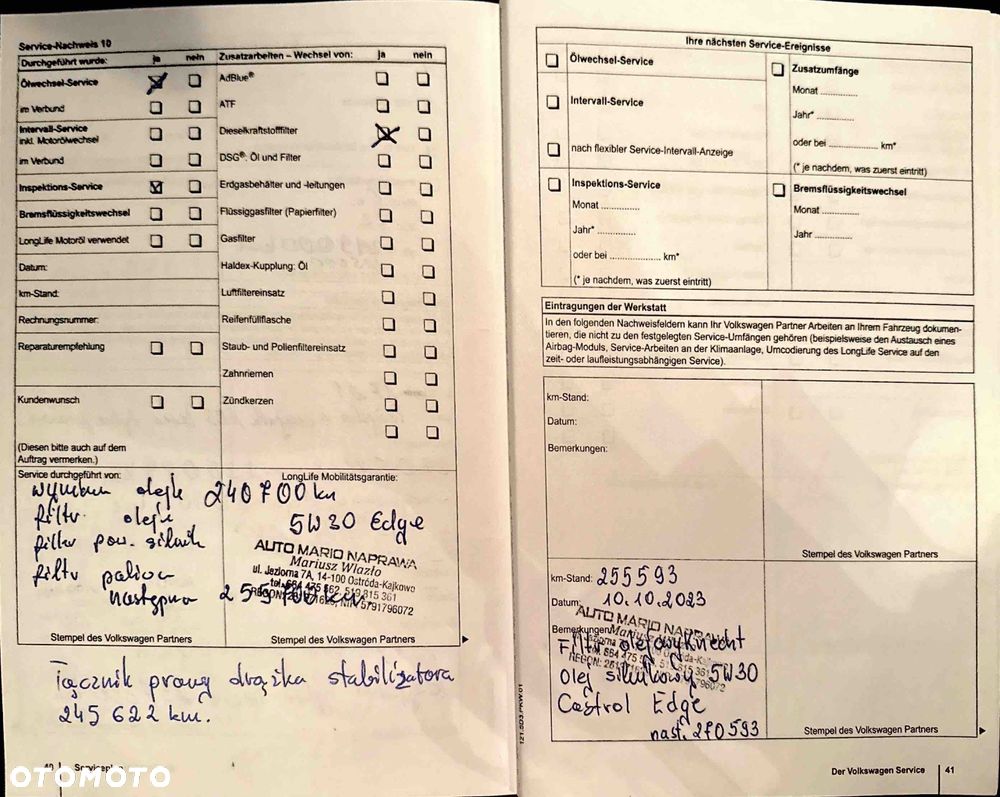 Service-Nachweis 10
Durchgeführt wurde: ja nein
Ölwechsel-Service
im Verbund
Intervall-Service
inkl. Motorölwechsel
im Verbund
Inspektions-Service
Bremsflüssigkeitswechsel
LongLife Motoröl verwendet
Datum:
km-Stand:
Rechnungsnummer:
Reparaturempfehlung
Kundenwunsch
(Diesen bitte auch auf dem
Auftrag vermerken.)
Zusatzarbeiten – Wechsel von: ja nein
AdBlue®
ATF
Dieselkraftstofffilter
DSG®: Öl und Filter
Erdgasbehälter und -leitungen
Flüssiggasfilter (Papierfilter)
Gasfilter
Haldex-Kupplung: Öl
Luftfiltereinsatz
Reifenfüllflasche
Staub- und Pollenfiltereinsatz
Zahnriemen
Zündkerzen
Service durchgeführt von:
LongLife Mobilitätsgarantie:
wymiana oleju 240700 km
filtr oleju 5W30 Edge
filtr pow. silnik
filtr paliwa
następna 255700 km.
AUTO MARIO NAPRAWA
Mariusz Wlazło
ul. Jeziorna 7A, 14-100 Ostróda-Kajkowo
tel. 664 475 562, 519 815 361
Stempel des Volkswagen Partners
Stempel des Volkswagen Partners
Łącznik prawy drążka stabilizatora
245 622 km.
40 Serviceplan
OTOMOTO
Ihre nächsten Service-Ereignisse
Ölwechsel-Service
Intervall-Service
nach flexibler Service-Intervall-Anzeige
Inspektions-Service
Monat ..............
Jahr* ..............
oder bei .................. km*
(* je nachdem, was zuerst eintritt)
Zusatzumfänge
Monat ..............
Jahr* ..............
oder bei .................. km*
(* je nachdem, was zuerst eintritt)
Bremsflüssigkeitswechsel
Monat ..............
Jahr ..............
Eintragungen der Werkstatt
In den folgenden Nachweisfeldern kann Ihr Volkswagen Partner Arbeiten an Ihrem Fahrzeug dokumen-
tieren, die nicht zu den festgelegten Service-Umfängen gehören (beispielsweise den Austausch eines
Airbag-Moduls, Service-Arbeiten an der Klimaanlage, Umcodierung des LongLife Service auf den
zeit- oder laufleistungsabhängigen Service).
km-Stand:
Datum:
Bemerkungen:
Stempel des Volkswagen Partners
km-Stand: 255593
Datum: 10.10.2023
Bemerkungen:
AUTO MARIO NAPRAWA
Filtr olejowy Knecht
olej silnikowy 5W30
Castrol Edge
nast. 270593
Stempel des Volkswagen Partners
121.5D3.PKW.01
Der Volkswagen Service 41